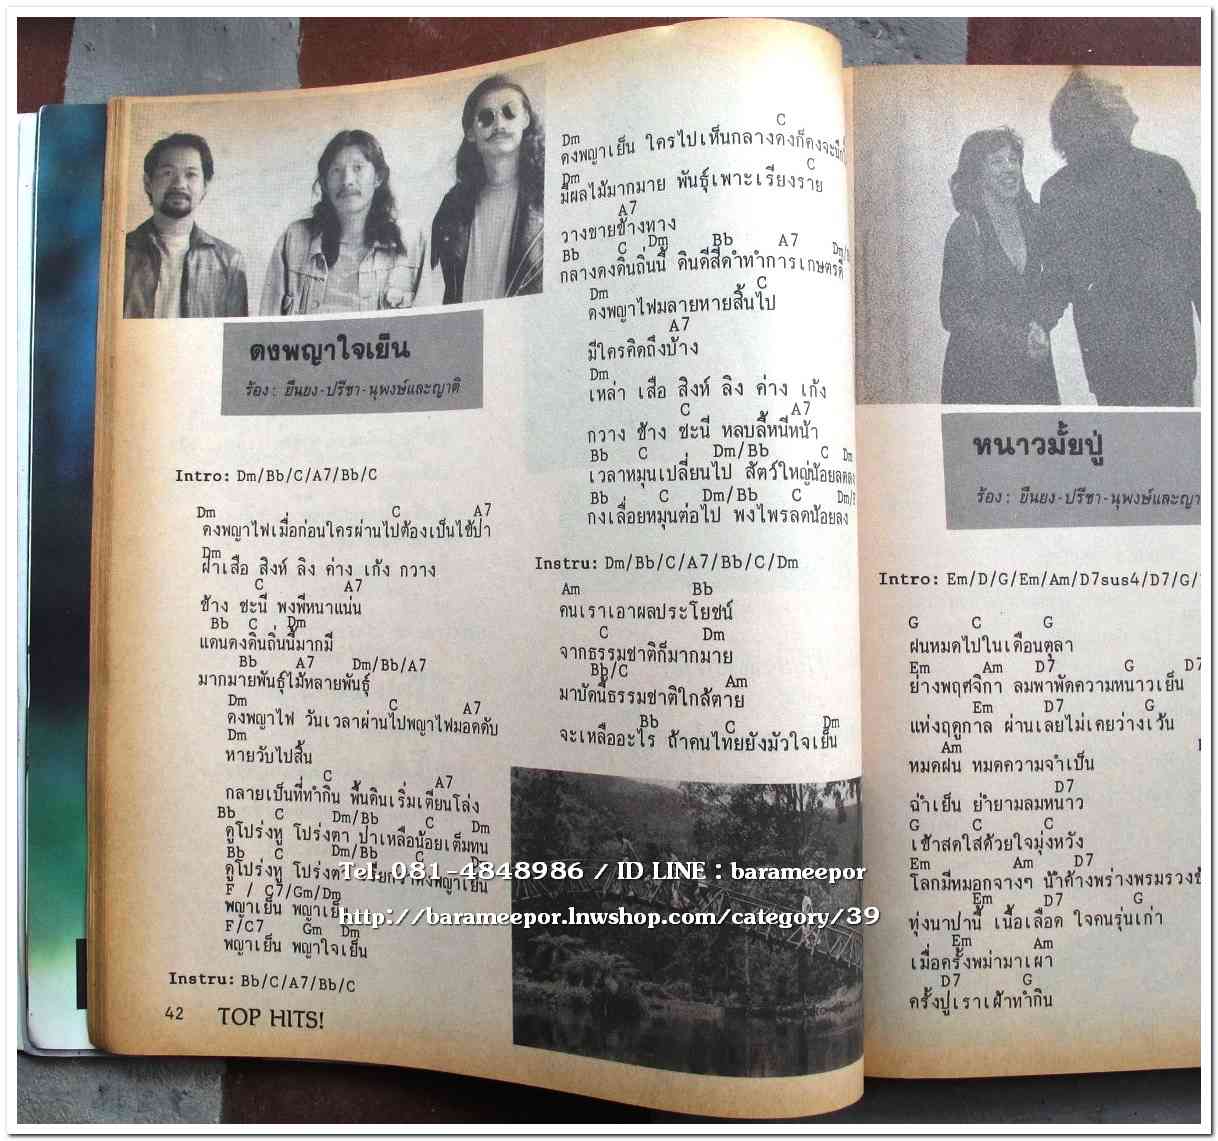 ดงพญาใจเย็น
ร้อง : ยืนยง - ปรีชา - นุพงษ์และญาติ
Intro: Dm/Bb/C/A7/Bb/C
Dm C A7
ดงพญาไฟเมื่อก่อนใครผ่านไปต้องเป็นไข้ป่า
Dm
ฝ่าเสือ สิงห์ ลิง ค่าง เก้ง กวาง
C A7
ช้าง ชะนี พงพีหนาแน่น
Bb C Dm
แดนดงดิบถิ่นนี้มากมี
Bb A7 Dm/Bb/A7
มากมายพันธุ์ไม้หลายพันธุ์
Dm C A7
ดงพญาไฟ วันเวลาผ่านไปพญาไฟมอดดับ
Dm
หายวับไปสิ้น
C A7
กลายเป็นที่ทำกิน พื้นดินเริ่มเตียนโล่ง
Bb C Dm/Bb C Dm
ดูโปร่งหู โปร่งตา ป่าเหลือน้อยเต็มทน
Bb C Dm/Bb C
ดูโปร่งหู โปร่งตา ดงพญาเย็น
F / C7/Gm/Dm
พญาเย็น พญาเย็น
F/C7 Gm Dm
พญาเย็น พญาใจเย็น
Instru: Bb/C/A7/Bb/C
42 TOP HITS!
Dm C
ดงพญาเย็น ใครไปเห็นกลางดงก็คงจะ
Dm C
มีผลไม้มากมาย พันธุ์เพาะเรียงราย
A7
วางขายข้างทาง
Bb C Dm Bb A7
กลางดงดินถิ่นนี้ ดินดีสีดำทำการเกษตรดี
Dm C
ดงพญาไฟมลายหายสิ้นไป
A7
มีใครคิดถึงบ้าง
Dm
เหล่า เสือ สิงห์ ลิง ค่าง เก้ง
C A7
กวาง ช้าง ชะนี หลบลี้หนีหน้า
Bb C Dm/Bb C Dm
เวลาหมุนเปลี่ยนไป สัตว์ใหญ่น้อยลดลง
Bb C Dm/Bb C
กงเลื่อยหมุนต่อไป พงไพรลดน้อยลง
Instru: Dm/Bb/C/A7/Bb/C/Dm
Am Bb
คนเราเอาผลประโยชน์
C Dm
จากธรรมชาติก็มากมาย
Bb/C Am
มาบัดนี้ธรรมชาติใกล้ตาย
Bb C Dm
จะเหลืออะไร ถ้าคนไทยยังมัวใจเย็น
หนาวมั้ยปู่
ร้อง : ยืนยง - ปรีชา - นุพงษ์และญา
Intro: Em/D/G/Em/Am/D7sus4/D7/G/
G C G
ฝนหมดไปในเดือนตุลา
Em Am D7 G D7
ย่างพฤศจิกา ลมพาพัดความหนาวเย็น
Em D7 G
แห่งฤดูกาล ผ่านเลยไม่เคยว่างเว้น
Am
หมดฝน หมดความจำเป็น
D7
ฉ่ำเย็น ย่ำยามลมหนาว
G C C
เช้าสดใสด้วยใจมุ่งหวัง
Em Am D7
โลกมีหมอกจางๆ น้ำค้างพร่างพรมรวงข้
Em D7 G
ทุ่งนาป่านี้ เนื้อเลือด ใจคนรุ่นเก่า
Em Am
เมื่อครั้งพม่ามาเผา
D7 G
ครั้งปู่เราเฝ้าทำกิน
Tel. 081-4848986 / ID LINE : barameepor
http://barameepor.lnwshop.com/category/39